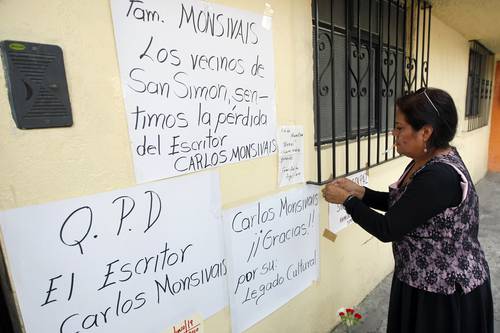 Fam. MONSIVAIS
Los vecinos de
San Simon, sen-
timos la pérdida
del Escritor
CARLOS MONSIVAIS
Q.P.D
El Escritor
Carlos Monsivais
Carlos Monsivais
¡¡Gracias!!
por su
Legado Cultural